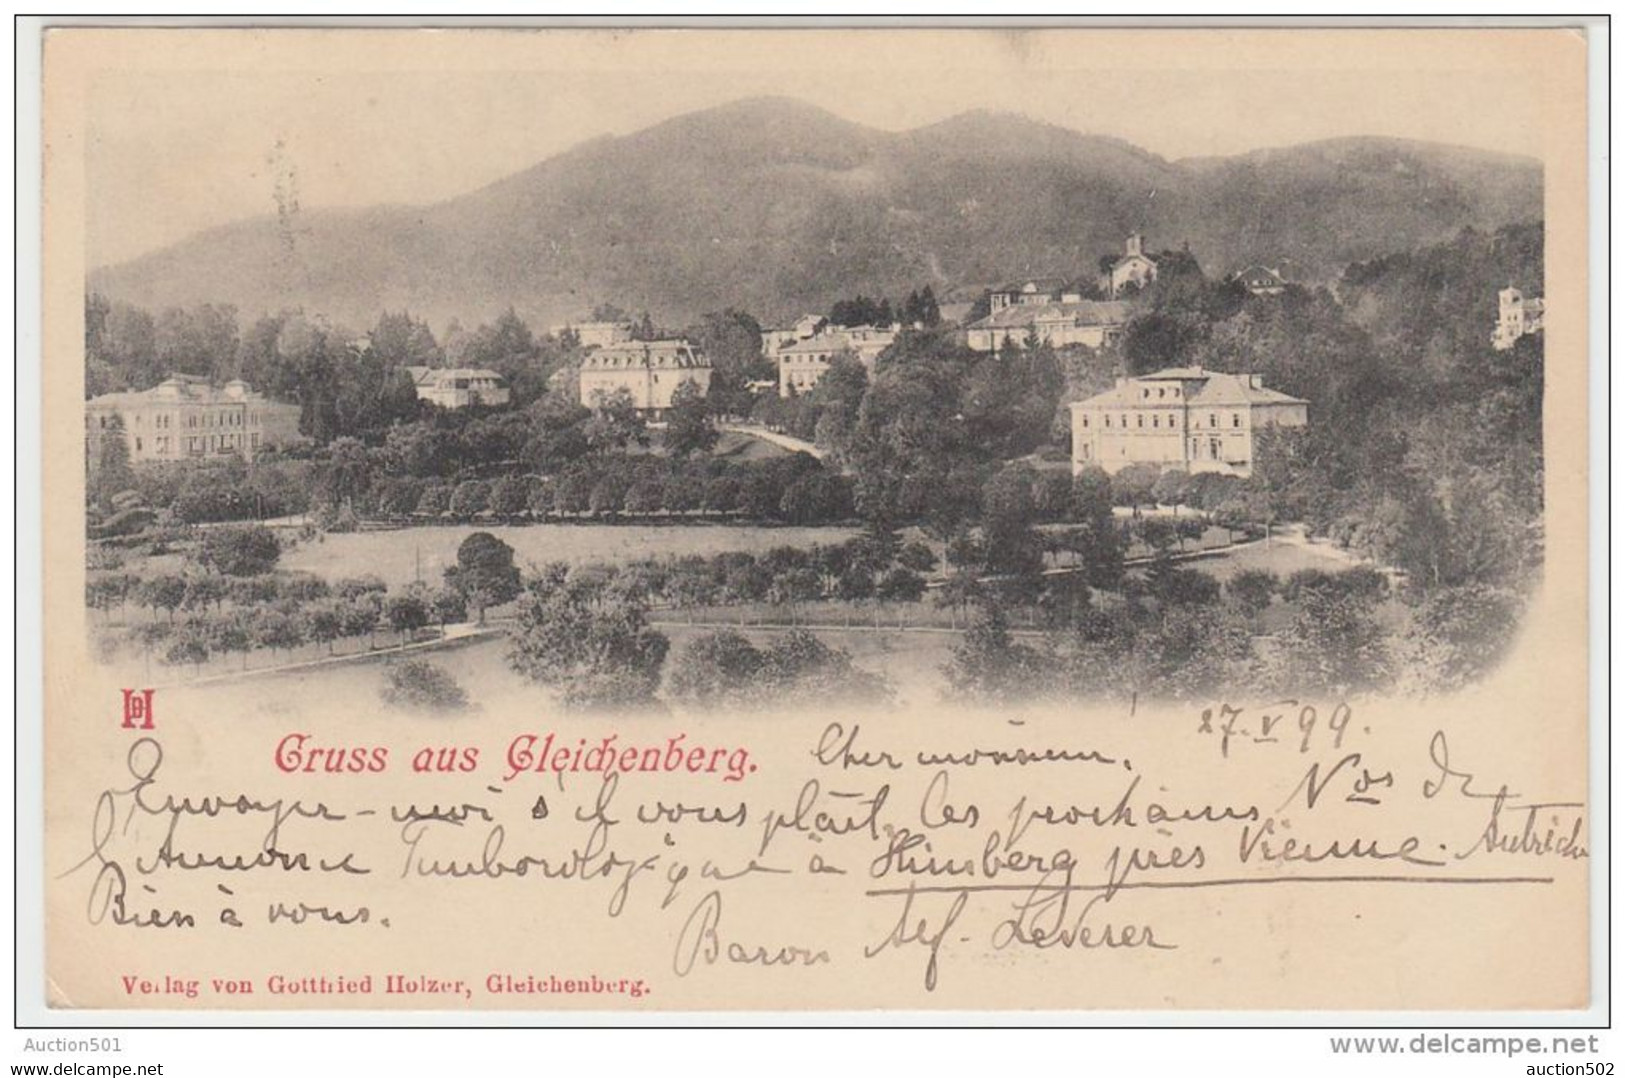 HD
Gruss aus Gleichenberg.
Cher monsieur. 27. V 99.
Envoyer-moi s'il vous plait, les prochains Nos de
l'Annonce Timbrologique à Himberg près Vienne. Autriche
Bien à vous.
Baron Alf. Lederer
Verlag von Gottfried Holzer, Gleichenberg.
Auction501
www.delcampe.net
auction502
auction502